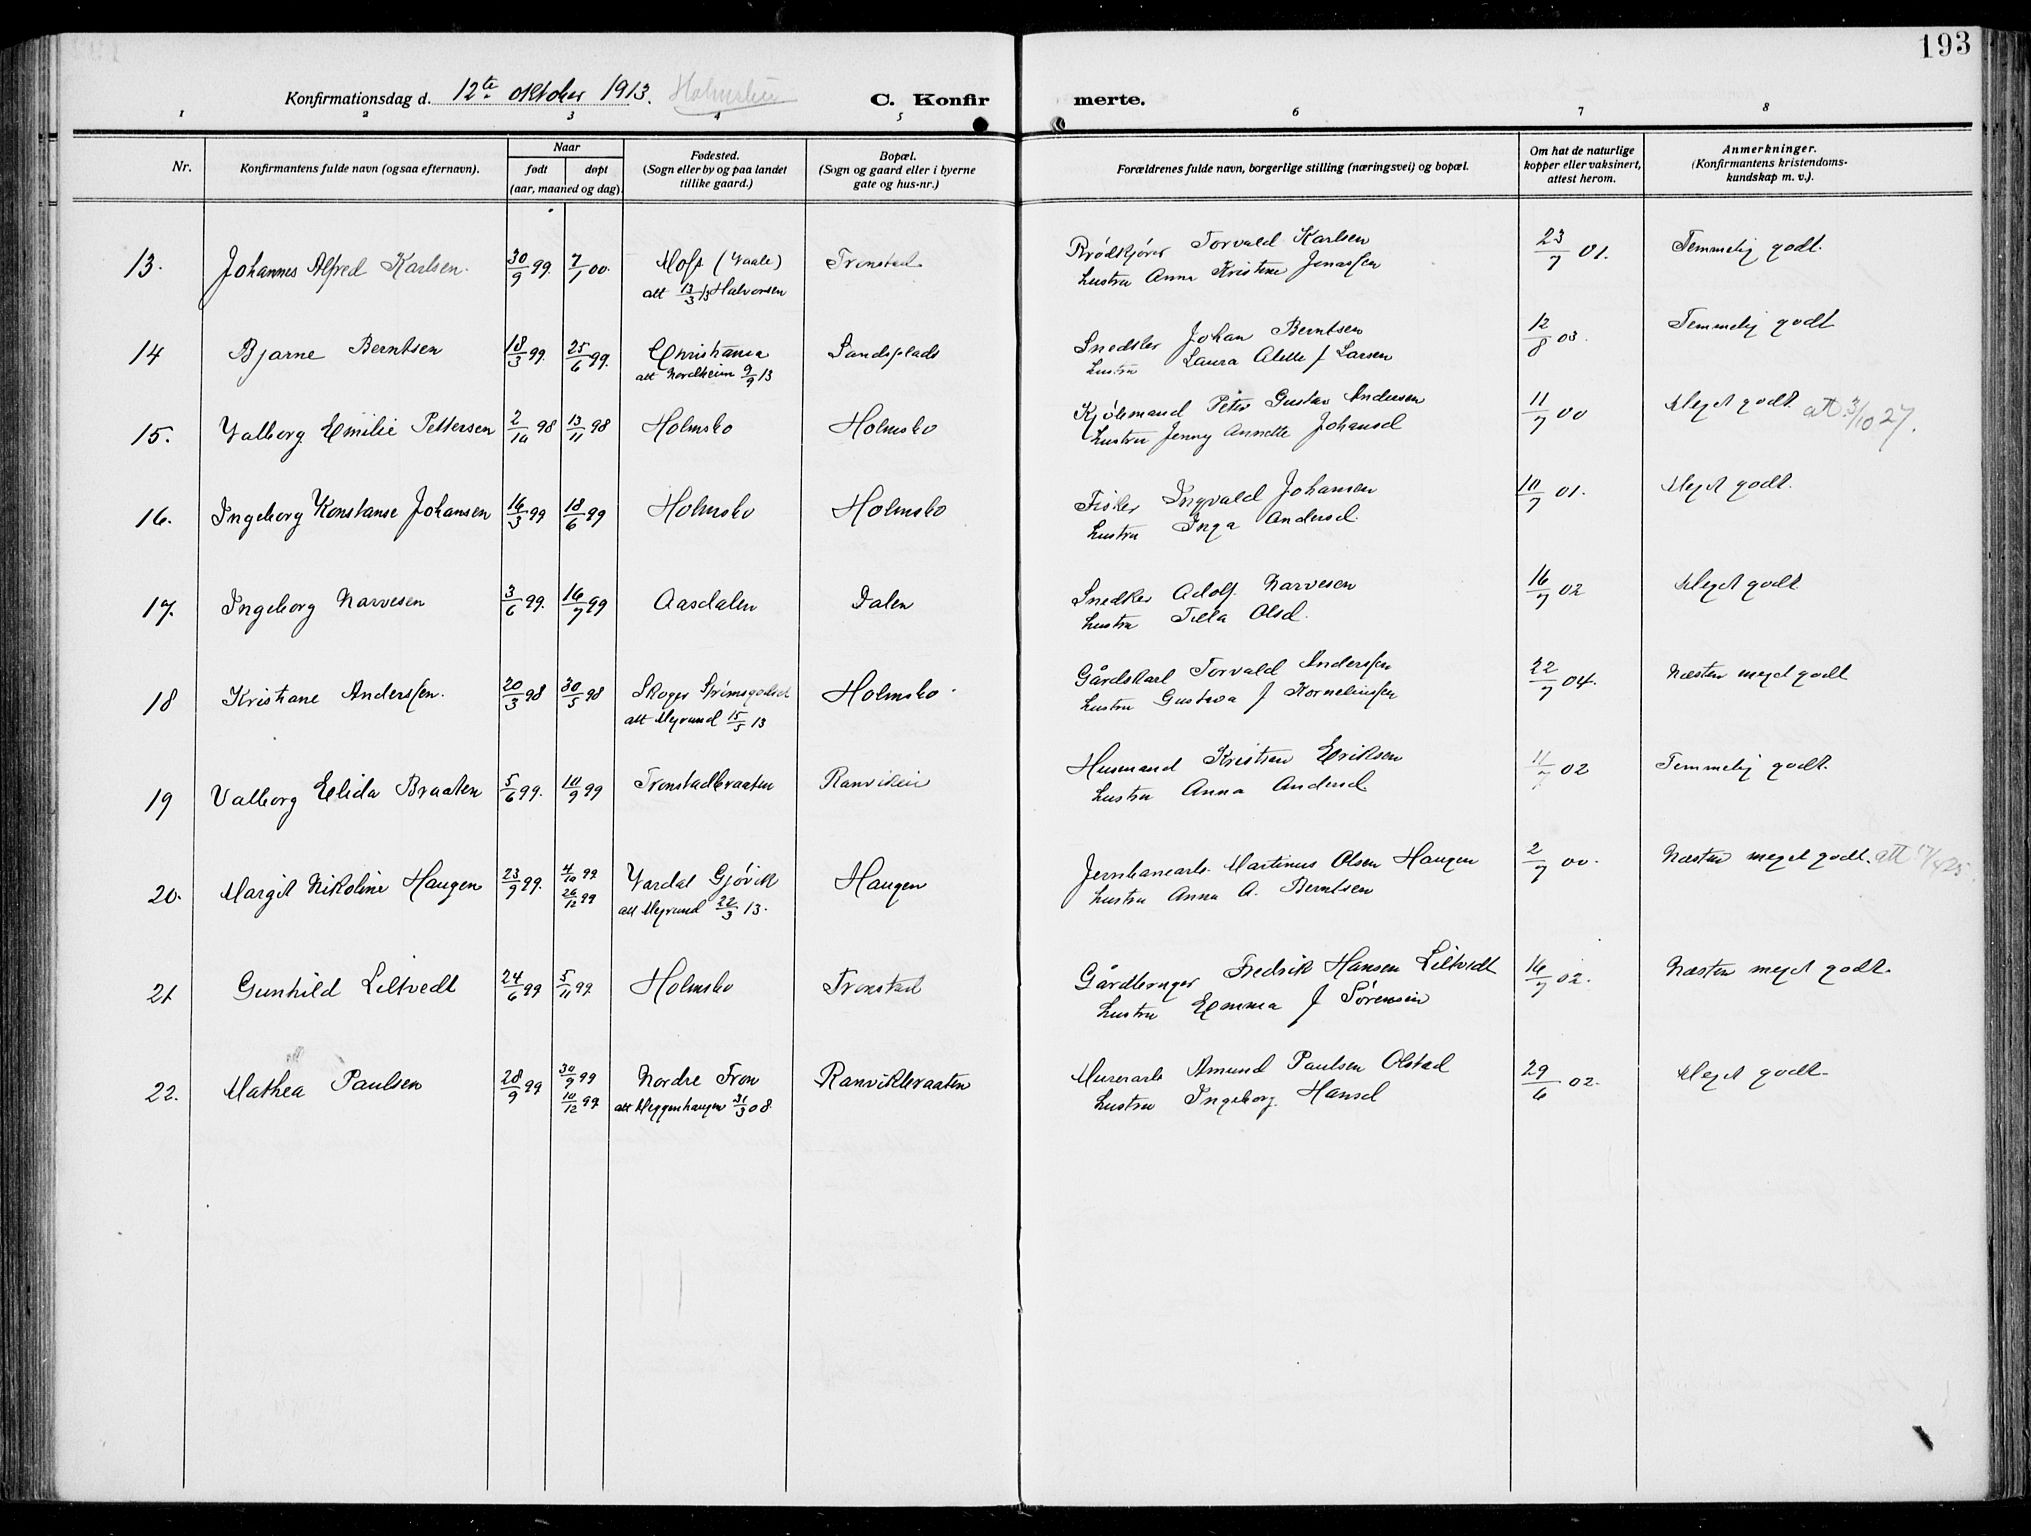 193
Konfirmationsdag d. 12te oktober 1913.
C. Konfirmerte.
1 2 3 4 5 6 7 8
Nr.
Konfirmantens fulde navn (ogsaa efternavn).
Naar
født døpt
(aar, maaned og dag)
Fødested.
(Sogn eller by og paa landet
tillike gaard.)
Bopæl.
(Sogn og gaard eller i byerne
gate og hus-nr.)
Forældrenes fulde navn, borgerlige stilling (næringsvei) og bopæl.
Om hat de naturlige
kopper eller vaksinert,
attest herom.
Anmerkninger.
(Konfirmantens kristendoms-
kundskap m. v.).
13. Johannes Alfred Karlsen. 30/9 99. 7/1 00. Moss (Vaale) Tronstad Brødkjører Torvald Karlsen 23/7 01. Temmelig godt.
att 13/3 13 Halvorsen Hustru Anna Kristine Jonassen
14 Bjarne Berntsen 18/3 99. 25/6 99. Christiania Sandsplads Snedker Johan Berntsen 12/8 03. Temmelig godt
att Nordheim 9/9 13 Hustru Laura Alette J Larsen
15. Valborg Emilie Pettersen 2/10 98 13/11 98 Holmsbo Holmsbo Kjølemand Peter Gustav Andersen 11/7 00 Meget godt. att 3/10 27.
Hustru Jenny Annette Johansd
16. Ingeborg Konstanse Johansen 16/3 99 18/6 99 Holmsbo Holmsbo Fisker Ingvald Johansen 10/7 01. Meget godt.
Hustru Inga Andersd.
17. Ingeborg Narvesen 3/6 99. 16/7 99 Aasdalen Dalen Snedker Adolf Narvesen 16/7 02 Meget godt
Hustru Tilla Olsd.
18 Kristiane Anderssen. 20/3 98 30/5 98 Skoger Strømsgodset Holmsbo Gårdskarl Torvald Anderssen 22/7 04. Næsten meget godt
att Myrund 15/5 13 Hustru Gustava J Korneliussen
19 Valborg Elida Braaten 5/6 99. 10/9 99 Tronstadbraaten Ranviken Husmand Kristian Eriksen 11/7 02 Temmelig godt.
Hustru Anna Andersd
20. Margit Nikoline Haugen 23/9 99. 4/10 99 26/12 99 Vardal Gjøvik Haugen Jernbanearb. Martinus Olsen Haugen 2/7 00. Næsten meget godt.
att Myrund 22/3 13. Hustru Anna A. Berntsen
21 Gunhild Liltvedt 24/6 99 5/11 99. Holmsbo Tronstad Gårdbruger Fredrik Hansen Liltvedt 16/7 02. Næsten meget godt.
Hustru Emma J Sørensen
22. Mathea Paulsen 28/9 99 30/9 99 10/12 99. Nordre Fron Ranvikbraaten Murerarb Amund Paulsen Olstad 29/6 02. Meget godt.
att Meggenhaugen 31/3 08. Hustru Ingeborg Hansd